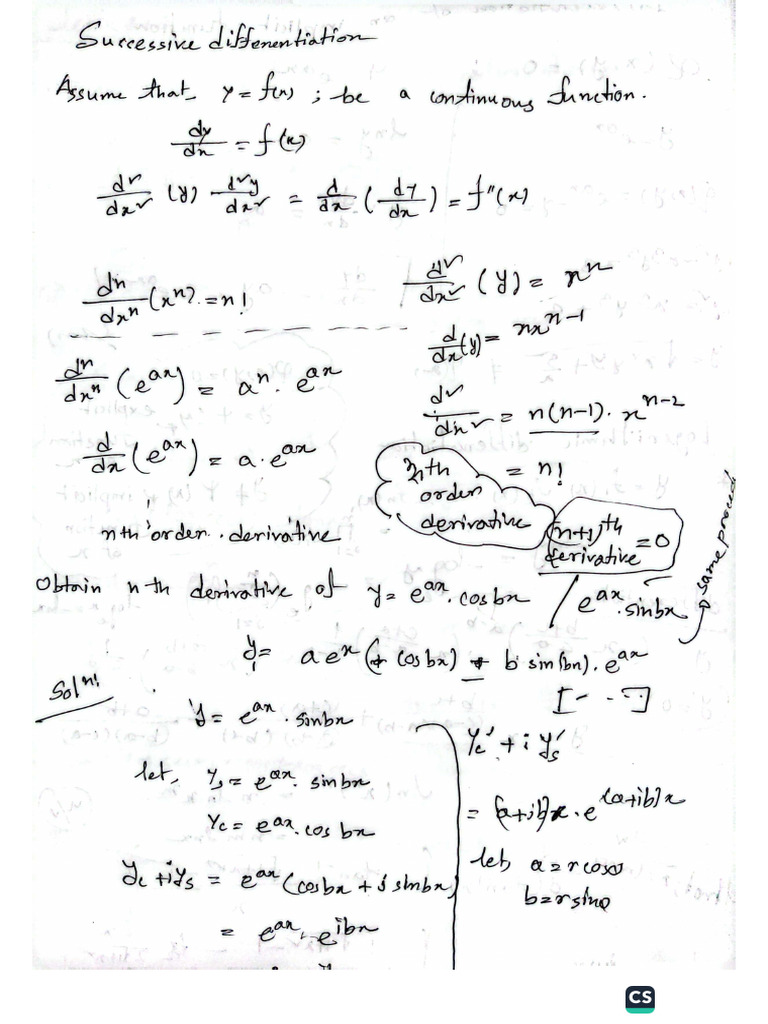 Successive differentiation
Assume that y = f(x) ; be a continuous function.
dy/dx = f(x)
d²/dx² (y) d²y/dx² = d/dx (dy/dx) = f"(x)
dⁿ/dxⁿ (xⁿ) = n!
dⁿ/dxⁿ (e^ax) = aⁿ. e^ax
d/dx (e^ax) = a.e^ax
nth order derivative
d²/dx² (y) = xⁿ
d/dx (y) = nx^n-1
d²/dx² = n(n-1). x^n-2
= n!
nth order derivative
(n+1)^th derivative = 0
Obtain n th derivative of y = e^ax. cosbx / e^ax. sinbx
same proced
y₁ = a e^x (+ cosbx) + b sin(bx). e^ax
[- - -]
Solⁿ!
y = e^ax . sinbx
let, ys = e^ax. sinbx
yc = e^ax. cos bx
yc + iys = e^ax (cosbx + i sinbx)
= e^ax . e^ibx
yc' + i ys'
= (a+ib)x. e^(a+ib)x
let, a = r cosθ
b = r sinθ
CS